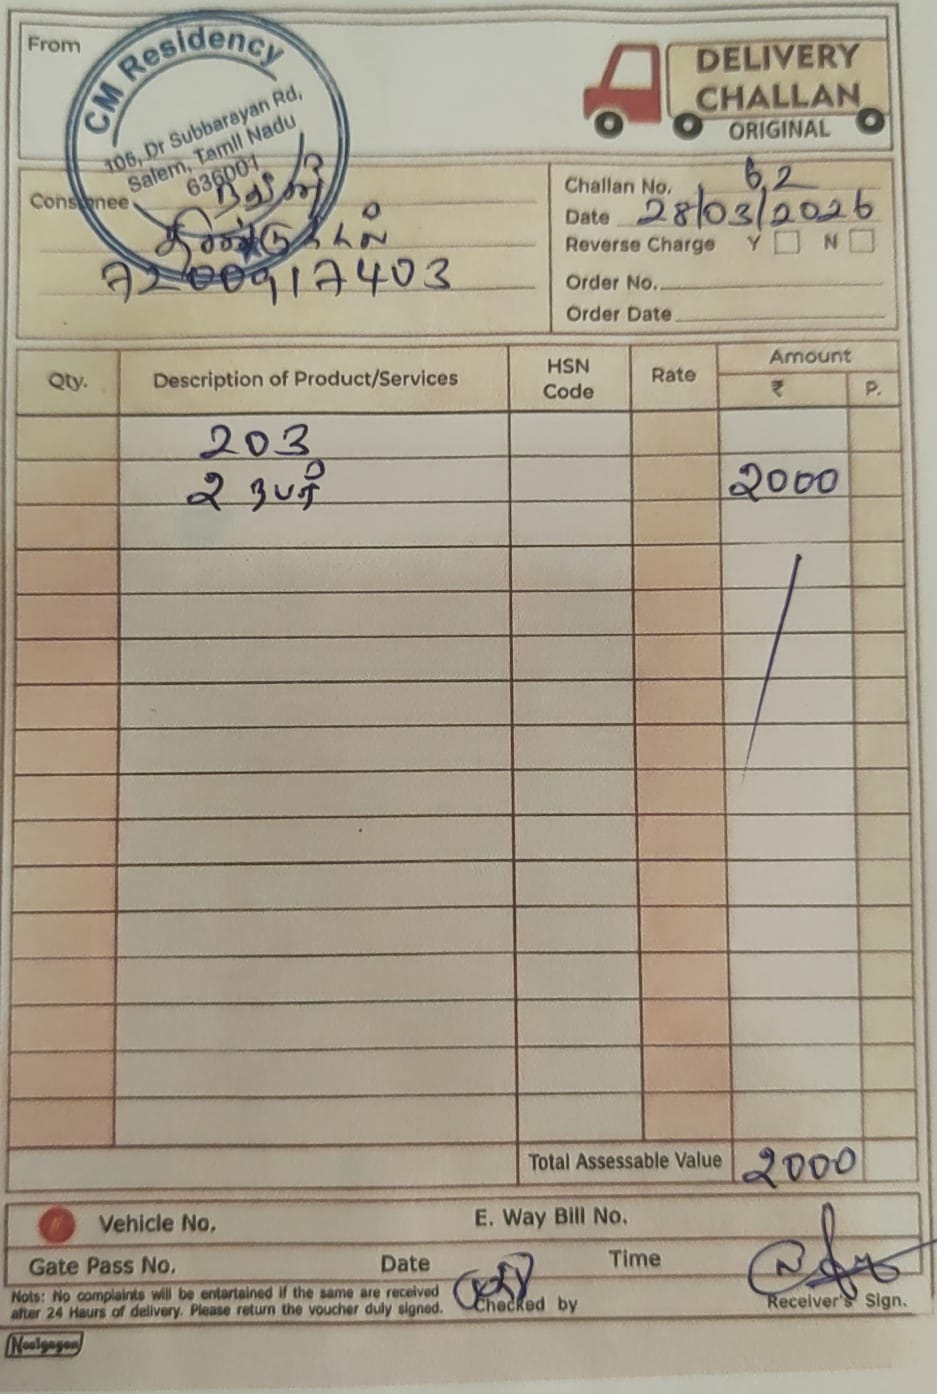 From
CM Residency
106, Dr Subbarayan Rd,
Salem, Tamil Nadu
636001
DELIVERY
CHALLAN
ORIGINAL
Consignee
திண்டுக்கல்
7200917403
Challan No. 62
Date 28/03/2026
Reverse Charge Y N
Order No.
Order Date
Qty.
Description of Product/Services
HSN Code
Rate
Amount
₹
P.
203
2 நபர்
2000
Total Assessable Value 2000
Vehicle No.
E. Way Bill No.
Gate Pass No.
Date
Time
Nots: No complaints will be entartained if the same are received
after 24 Haurs of delivery. Please return the voucher duly signed.
Checked by
Receiver's Sign.